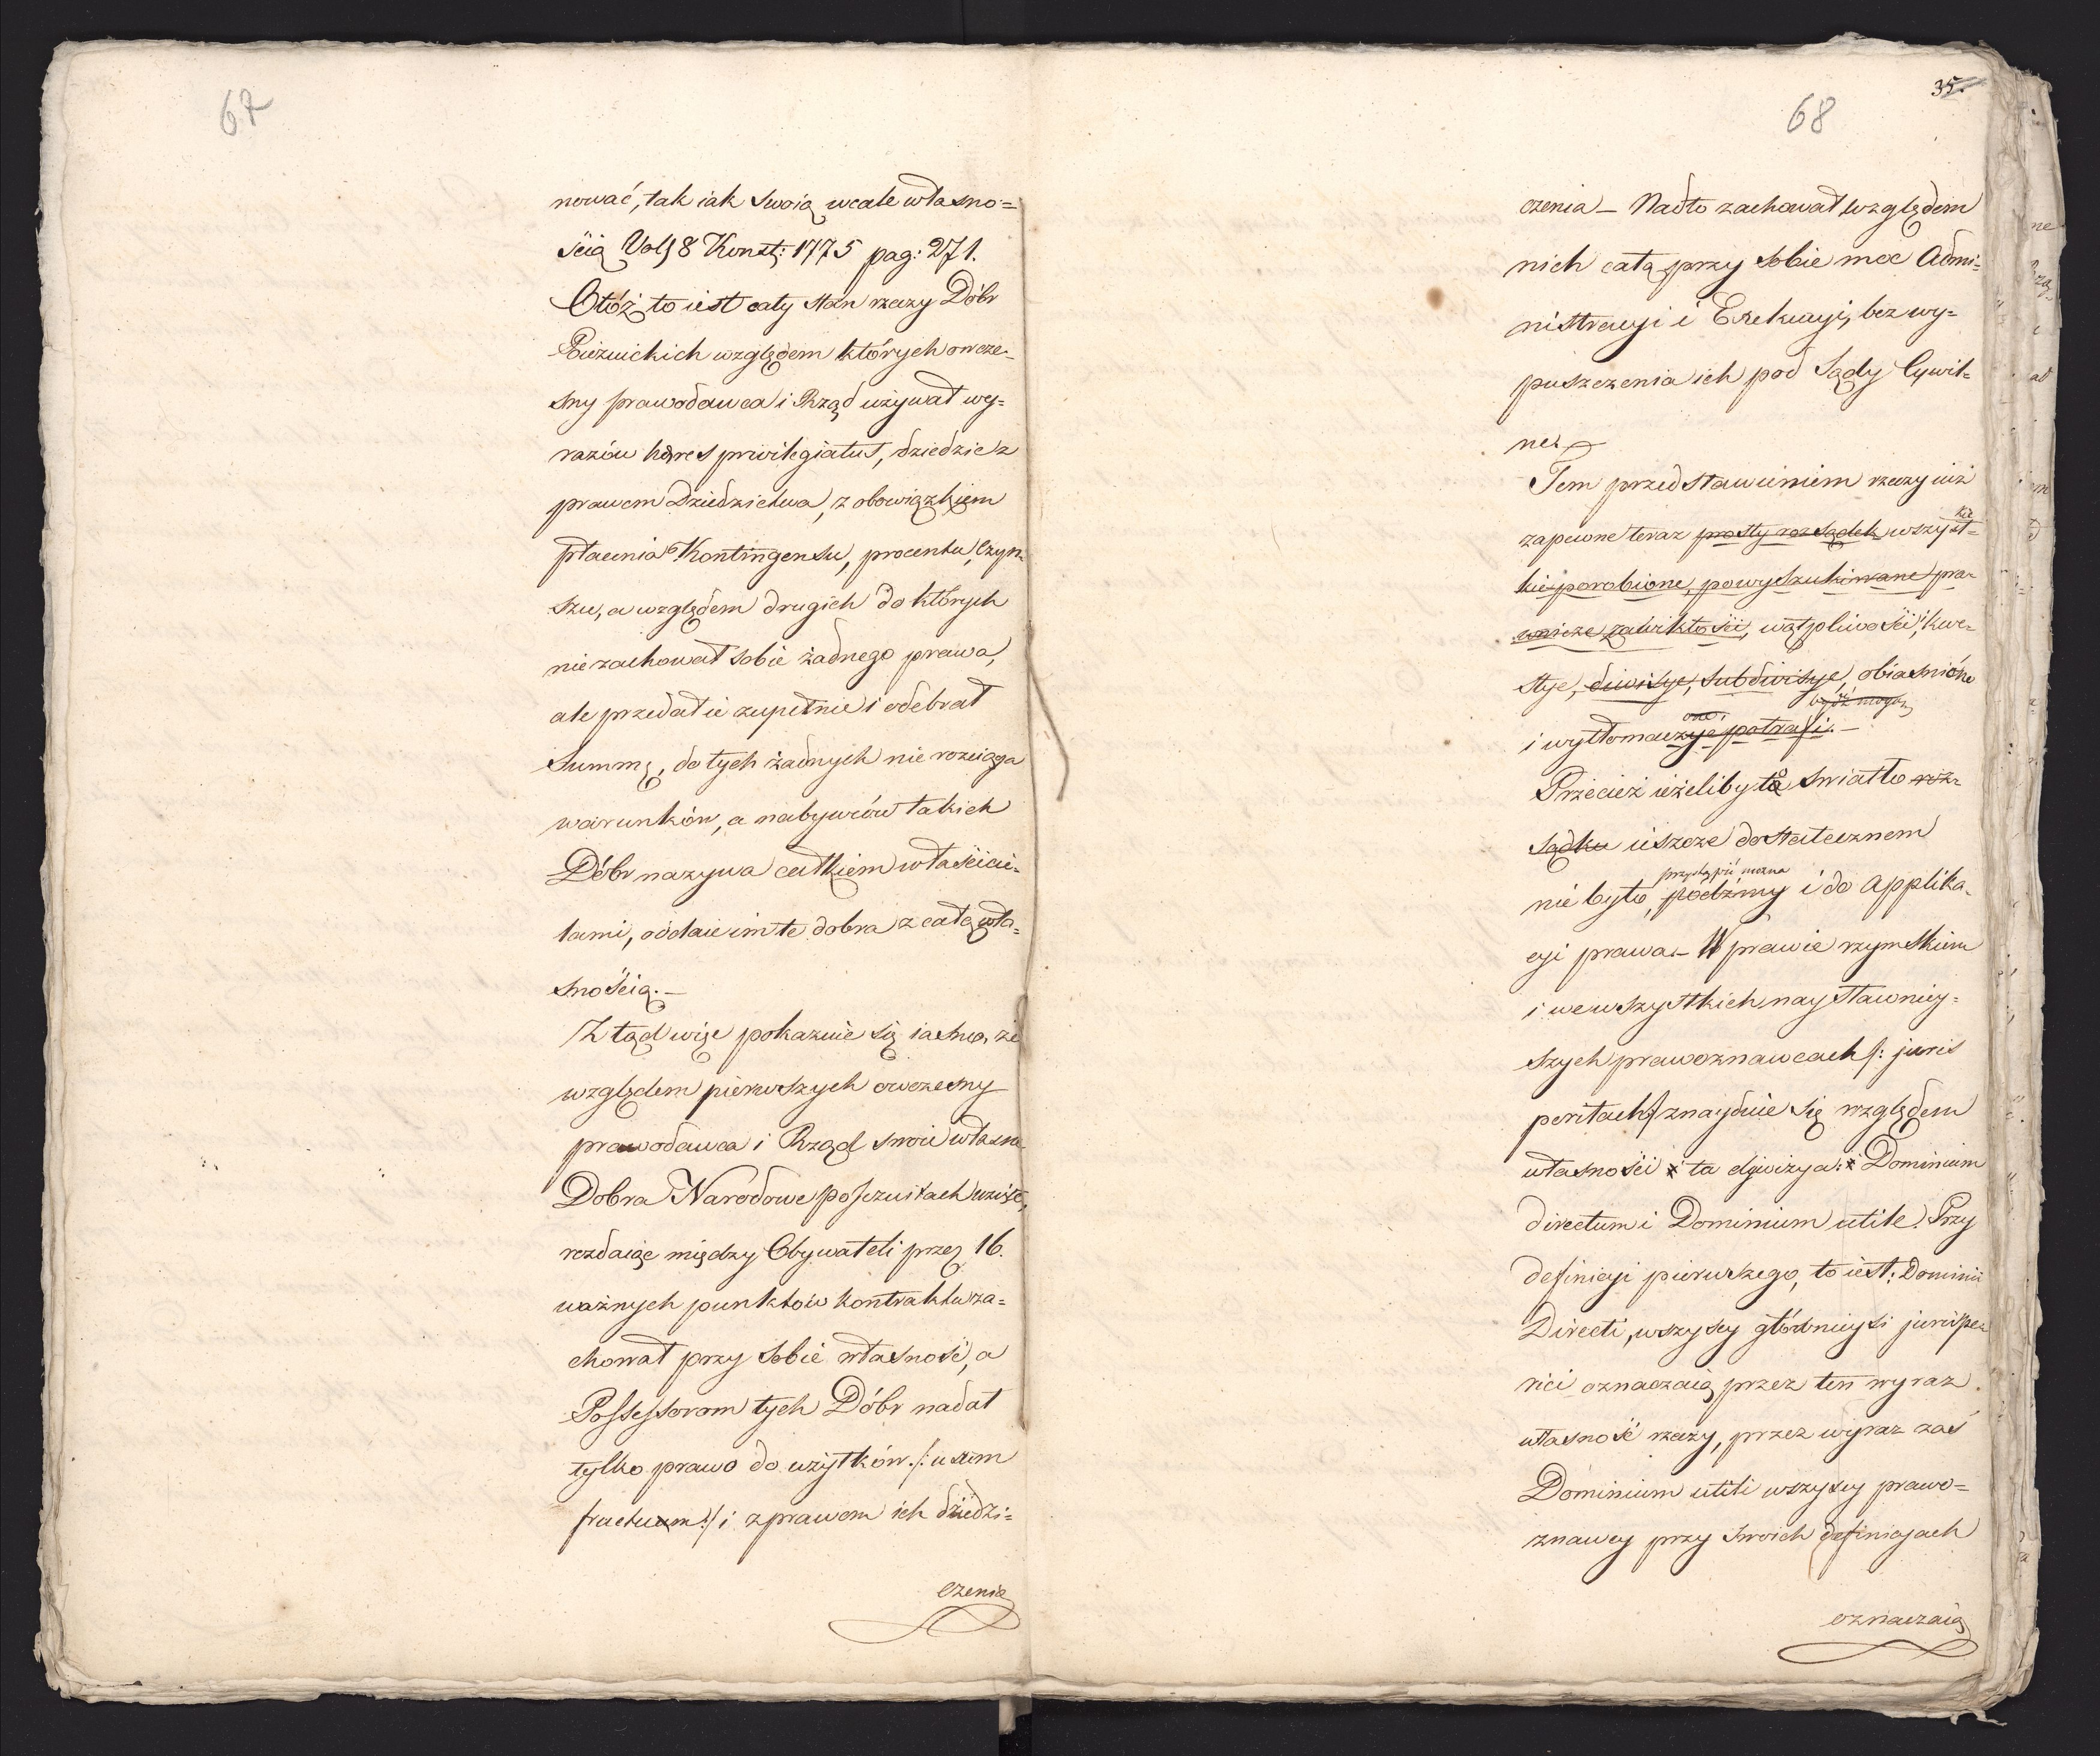 67
nować, tak iak swoią wcale własno=
ścią Vol: 8 Konst: 1775 pag: 271.
Otóż to iest cały stan rzeczy Dóbr
Poiezuickich względem których owcze-
sny prawodawca i Rząd używał wy=
razów hæres privilegiatus, dziedzic z
prawem Dziedzictwa, z obowiązkiem
płacenia Kontingensu, procentu, Czyn-
szu, a względem drugich do których
nie zachował sobie żadnego prawa,
ale przedał ie zupełnie i odebrał
Summę, do tych żadnych nie rozciąga
warunków, a nabywców takich
Dóbr nazywa całkiem właścicie-
lami, oddaie im te dobra z całą wła-
snością.—
Z tąd więc pokazuie się iasno, że
względem pierwszych owczesny
prawodawca i Rząd swoie własne
Dobra Narodowe poJezuitach wzięte,
rozdaiąc między Obywateli przez 16.
ważnych punktow kontraktu za=
chował przy sobie własność, a
Possessorom tych Dóbr nadał
tylko prawo do użytków /: usum
fructuum :/ i z prawem ich dziedzi=
czenia
35.
68
czenia — Nadto zachował względem
nich całą przy sobie moc Admi=
nistracyi i Exekucyi, bez wy=
puszczenia ich pod Sądy Cywil=
ne.
Tem przedstawieniem rzeczy iuż
kie
zapewne teraz prosty rozsądek wszyst=
kie porobione, powyszukiwane pra-
wnicze zawikłości, wątpliwości, kwe-
stye, diwizye, subdiwizye, obiasnióne
bydź mogą
one.
i wytłomaczyc potrafi.—
Przecież ieżeliby to swiatło roz-
sądku ieszcze dostatecznem
przystąpić można
nie było, pódźmy i do applika-
cyi prawa.— W prawie rzymskiem
i we wszystkich naysławniey=
szych prawoznawcach /: juris
peritach :/ znayduie się względem
własności ta dywizya: Dominium
directum i Dominium utile. Przy
definicyi pierwszego, to iest: Dominii
Directi, wszyscy główniejsi jurispe-
rici oznaczaią przez ten wyraz
własność rzeczy, przez wyraz zaś
Dominium utili wszyscy prawo=
znawcy przy swoich definicyach
oznaczaią